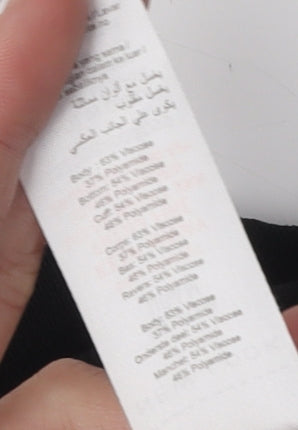 يغسل مع ألوان مماثلة
يغسل مقلوب
يكوى على الجانب العكسي
Body : 63% Viscose
37% Polyamide
Bottom: 54% Viscose
46% Polyamide
Cuff: 54% Viscose
46% Polyamide
Corps: 63% Viscose
37% Polyamide
Bas: 54% Viscose
46% Polyamide
Revers: 54% Viscose
46% Polyamide
Body: 63% Viscose
37% Polyamide
Onderste deel: 54% Viscose
46% Polyamide
Manchet: 54% Viscose
46% Polyamide